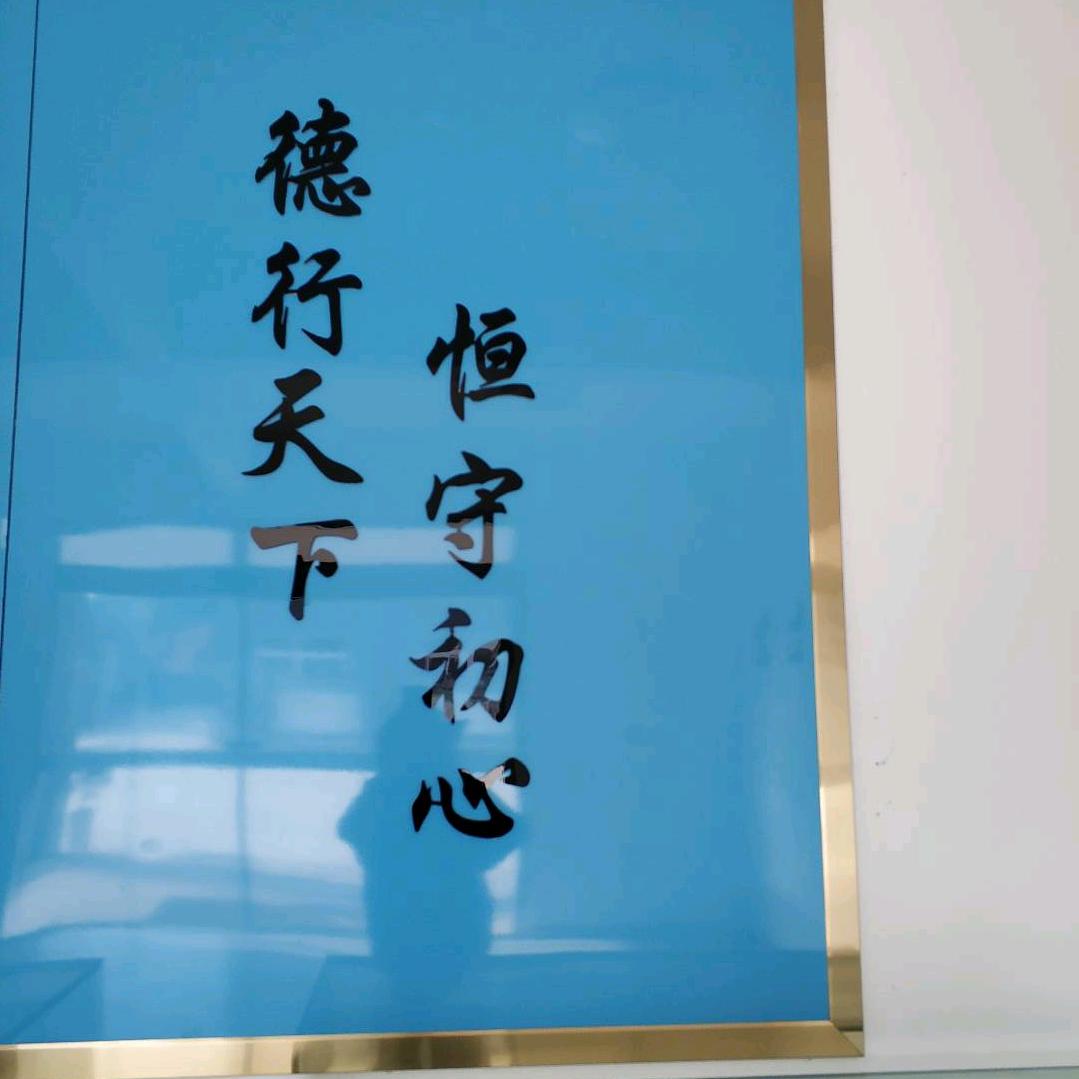 德行天下
恒守初心